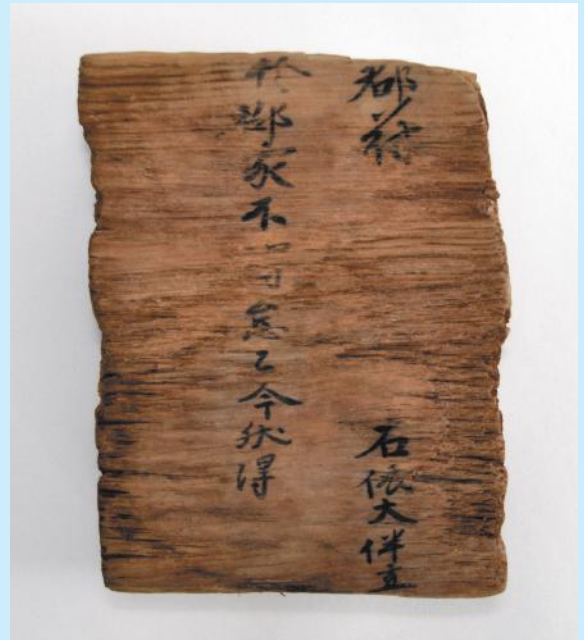 郡符 石依大伴直
於郡家不可怠々今状得